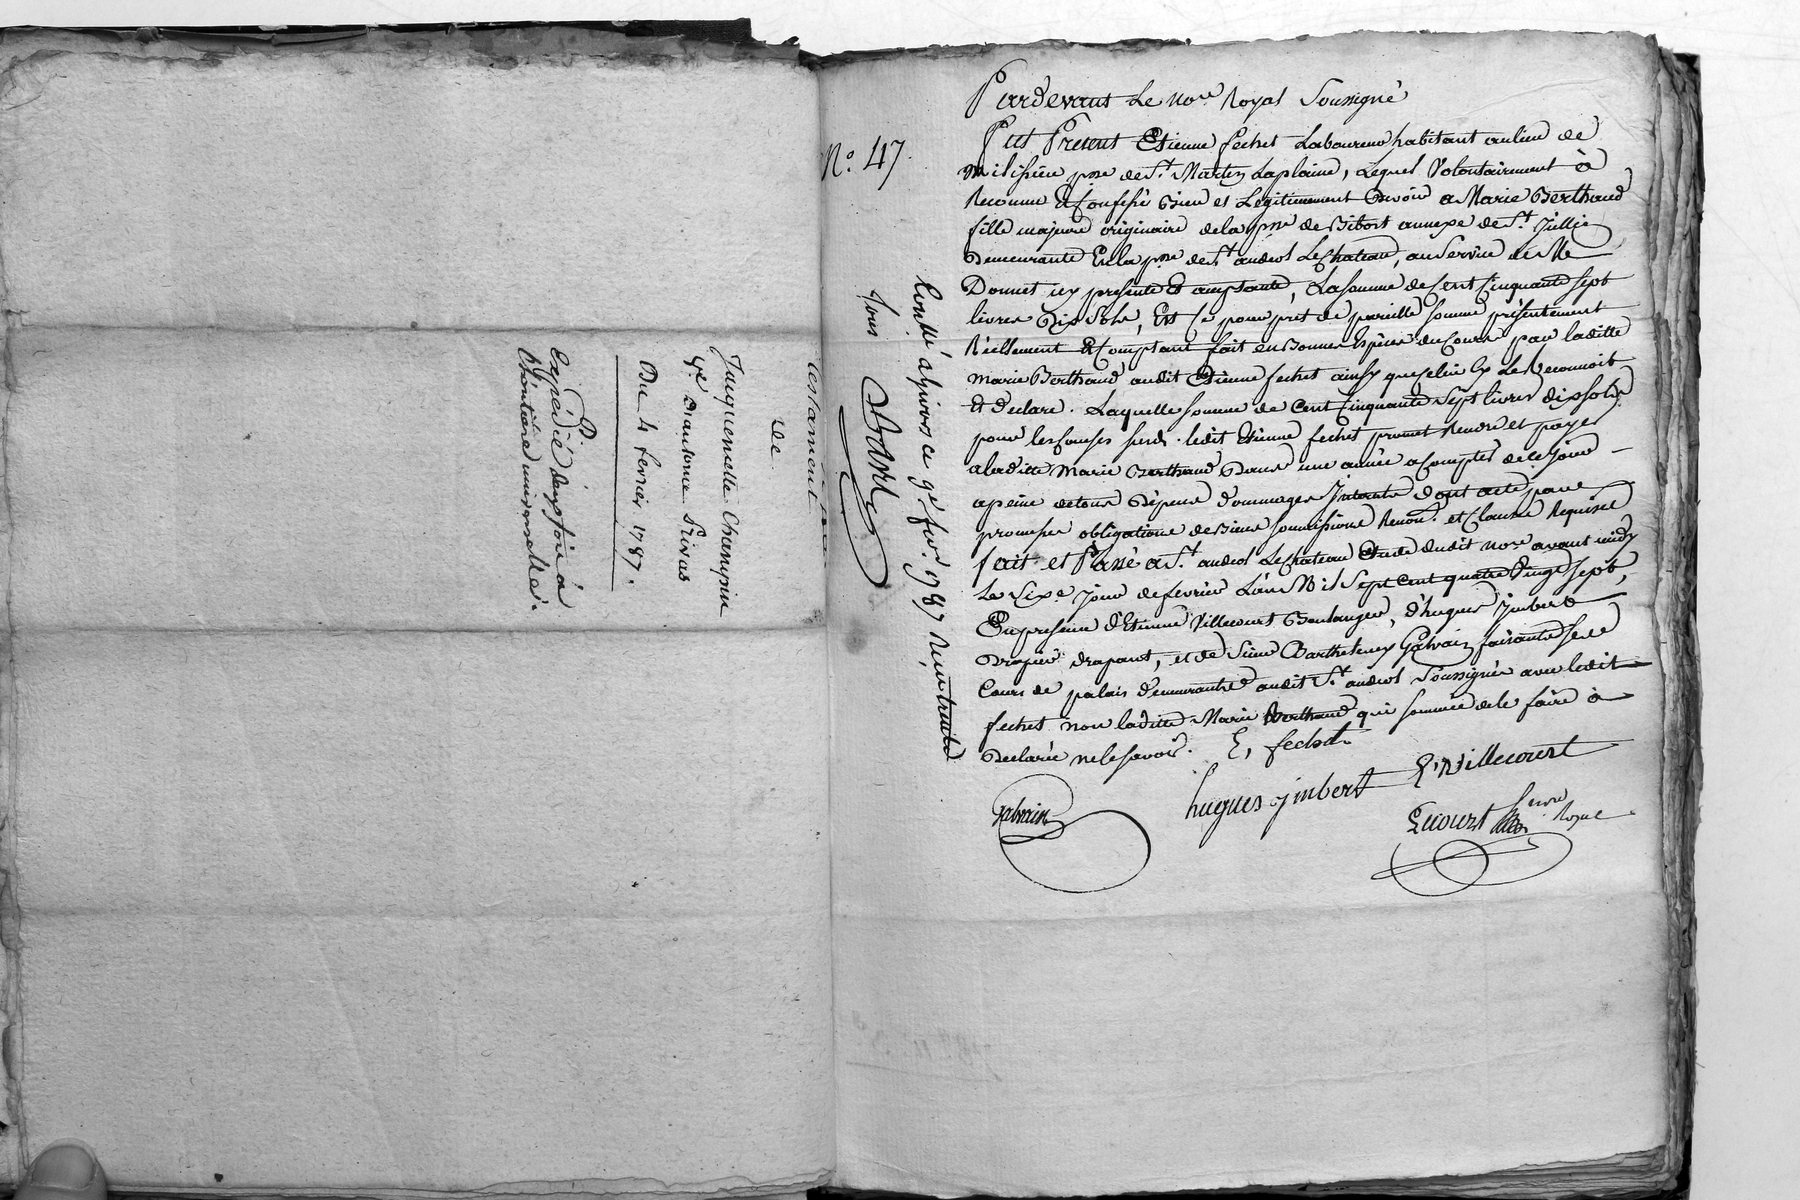 testament
de
Jacquemette Champin
ve d'antoine Privas
Du 4 fevrier 1787.
Expédié
N.º 47.
Conllé a Givors ce 9e fevr 1787 Reçu trente
sous Dard
Pardevant Le Nore Royal Soussigné
Fut Present Etienne fechet Laboureur habitant au lieu de
Milissieu psse de St. Martin Laplaine, Lequel Volontairement à
Reconnu & Confessé Bien et Legitimement Devoir a Marie Berthaud
fille majeure originaire de la psse de Bibost annexe de St. Jullie
Demeurante En la psse de St andeol Le Chateau, au Service de Me
Donnet icy presente & aceptante, La somme de Cent Cinquante sept
livres Dix Sols, Est Ce pour pret de pareille somme présentement
Réellement & Comptant fait en Bonnes Espèces du Cours par laditte
Marie Berthaud audit Etienne fechet ainsy que celui cy Le Reconnoit
et declare. Laquelle somme de Cent Cinquante Sept livres dix sols
pour les causes susd. ledit Etienne fechet promet Rendre et payer
a laditte Marie Berthaud Dans une année a Compter de ce Jour
a peine de tous Dépens Dommages Interets dont acte par
promesses obligations de Biens soumissions Renon. et Clauses Requises
fait et Passé a St. andeol Le Chateau Etude dudit Nore avant midy
Le Sixe Jour de fevrier L'an Mil Sept Cent quatre Vingt Sept,
En presence d'Etienne Villecourt Boulanger, d'hugues Jmbert
Drapier drapant, et de Sieur Barthelemy Galvain faisant se
Cours de palais demeurants audit St. andeol Soussignés avec ledit
fechet non laditte Marie Berthaud qui sommée de le faire à
Declarée ne le savoir. E, fechet
Galvain hugues jmbert E, Villecourt
Lecourt nore Royal